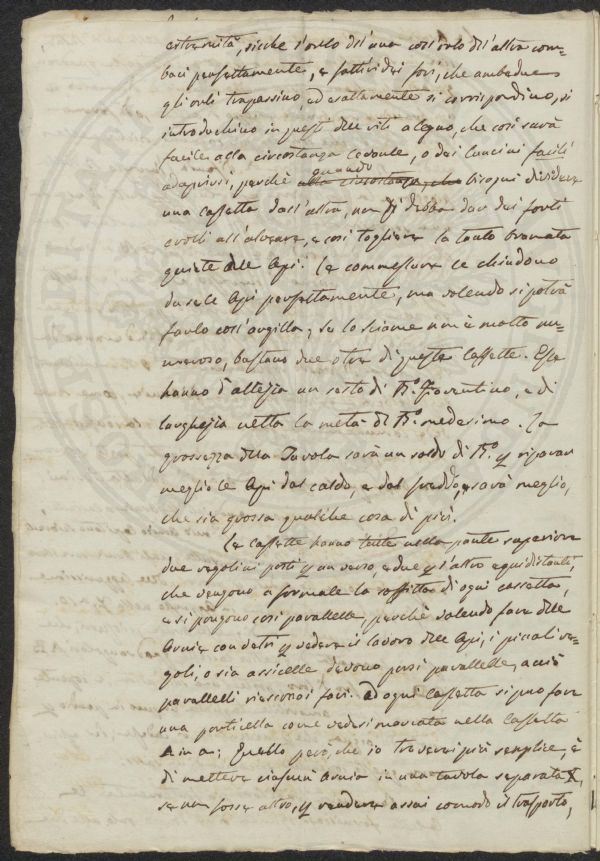 estremità, sicchè l'orlo dell'una coll'orlo dell'altra com-
baci perfettamente, e fattivi dei fori, che ambedue
gli orli trapassino, ed esattamente si corrispondino, si
introduchino in questi delle viti a legno, che così sarà
facile alla circostanza levarle, o dei lucini facili
ad aprirsi, perchè quando bisogni dividere
una cassetta dall'altra, non si debba dar dei forti
crolli all'alveare, e così togliere la tanto bramata
quiete alle Api. Le commessure le chiudono
da se le Api perfettamente, ma volendo si potrà
farlo coll'argilla; se lo sciame non è molto nu-
meroso, bastano due o tre di queste Cassette. Esse
hanno d'altezza un sesto di Bº. Fiorentino, e di
larghezza netta la metà di Bº. medesimo. La
grossezza della Tavola sarà un soldo di Bº. p riparar
meglio le Api dal caldo, e dal freddo, e sarà meglio,
che sia grossa qualche cosa di più.
Le Cassette hanno tutte nella parte superiore
due regolini posti p un verso, e due p l'altro equidistanti,
che vengono a formale la soffitta di ogni cassetta,
e si pongono così parallelle, perchè volendo fare delle
Arnie con vetri p vedere il lavoro delle Api, i piccoli re-
goli, o sia assicelle devono porsi parallelle, acciò
parallelli rieschino i favi. Ad ogni Cassetta si può fare
una porticella come vedesi marcata nella Cassetta
A in a; Quello però, che io troverei più semplice, è
di mettere ciascuna Arnia in una tavola separata X,
se non fosse altro, p rendere assai comodo il trasporto,